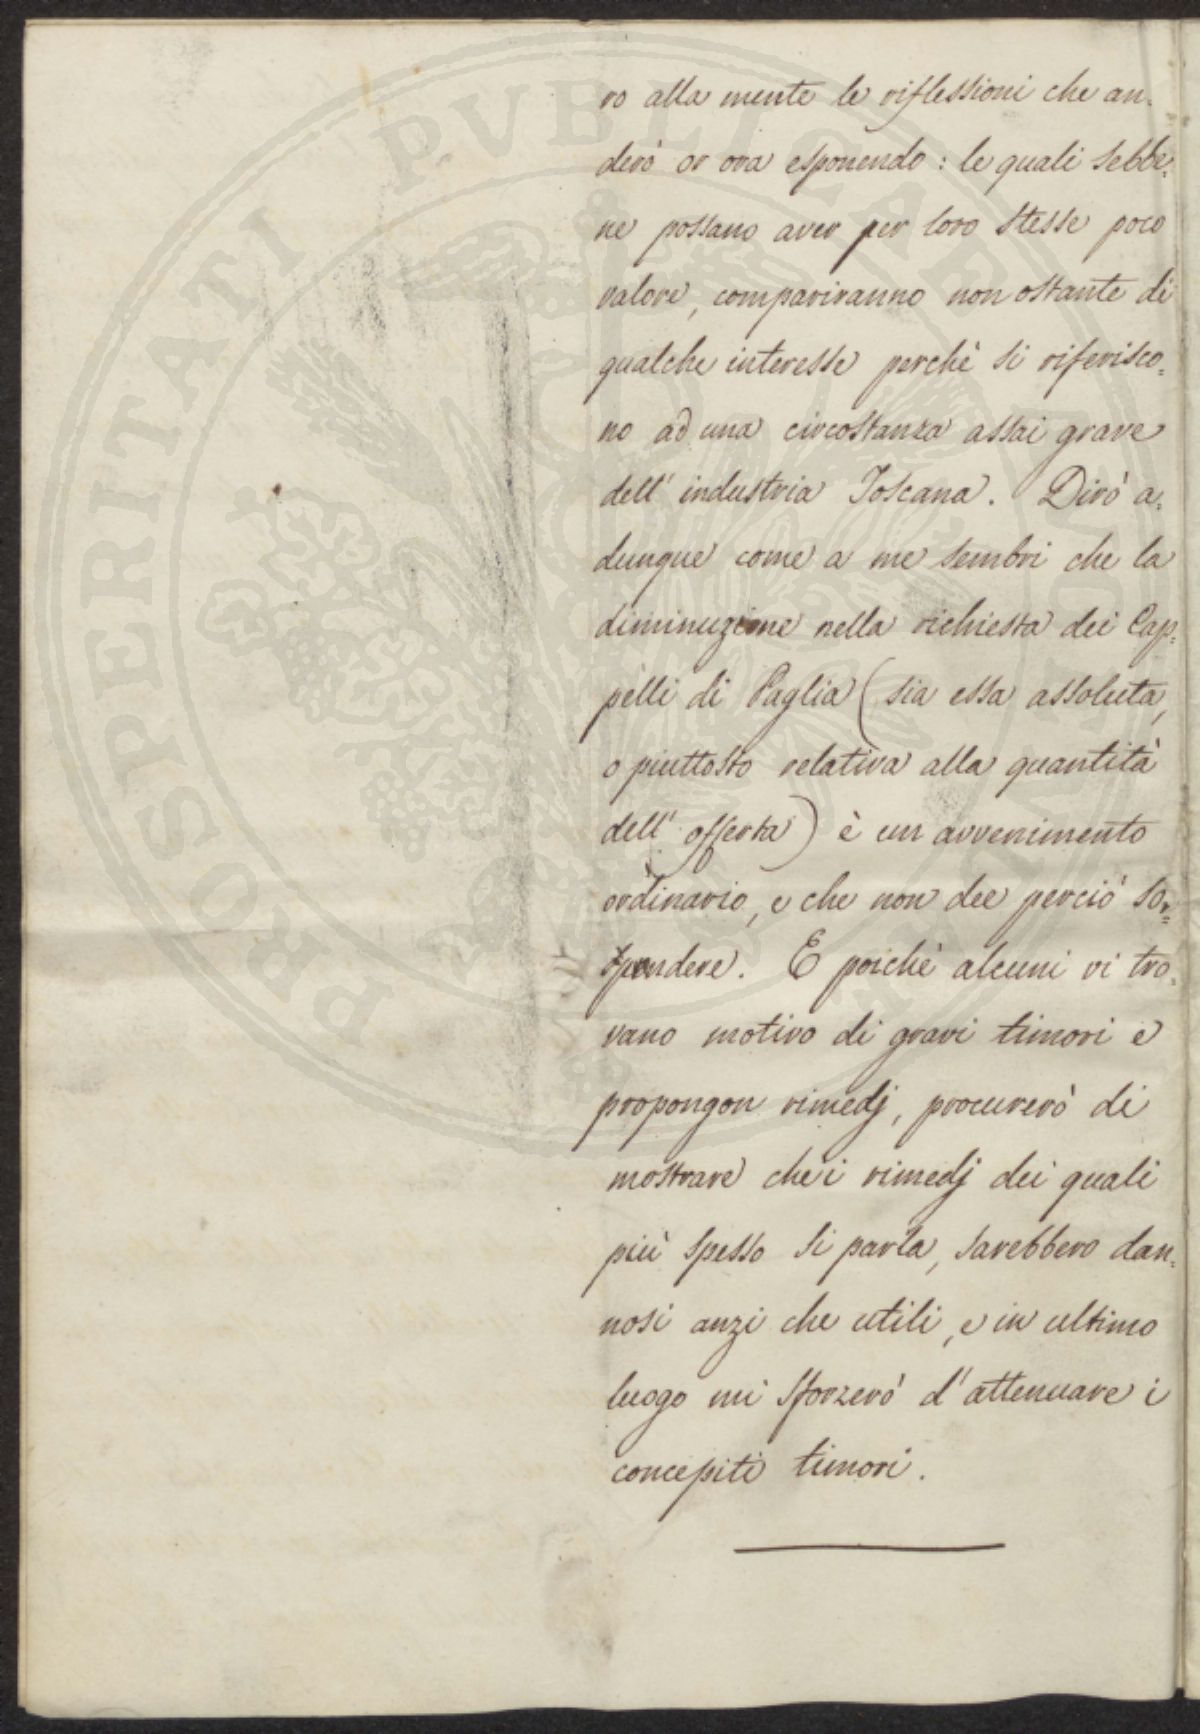 ro alla mente le riflessioni che an-
derò or ora esponendo: le quali sebbe-
ne possano aver per loro stesse poco
valore, compariranno non ostante di
qualche interesse perchè si riferisco=
no ad una circostanza assai grave
dell' industria Toscana. Dirò a-
dunque come a me sembri che la
diminuzione nella richiesta dei Cap-
pelli di Paglia (sia essa assoluta,
o piuttosto relativa alla quantità
dell' offerta) è un avvenimento
ordinario, e che non dee perciò sor=
prendere. E poichè alcuni vi tro-
vano motivo di gravi timori e
propongon rimedj, procurerò di
mostrare che i rimedj dei quali
più spesso si parla, sarebbero dan-
nosi anzi che utili, e in ultimo
luogo mi sforzerò d'attenuare i
concepiti timori.
PROSPERITATI PVBLICAE